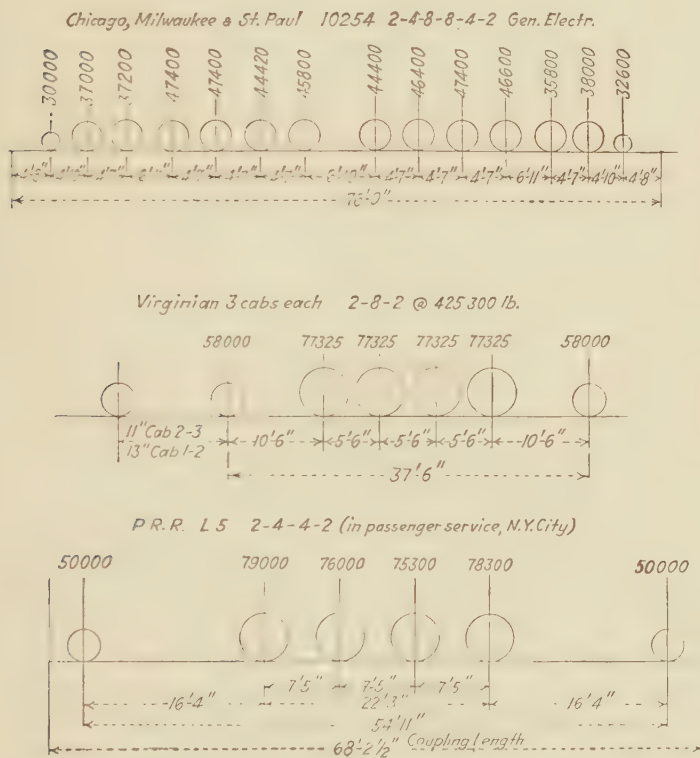 Chicago, Milwaukee & St. Paul 10254 2-4-8-8-4-2 Gen. Electr.
30000 37000 37200 47400 47400 44420 45800 44400 46400 47400 46600 35800 38000 32600
4'7" 4'7" 4'7" 6'11" 4'7" 4'10" 4'8"
76'0"
Virginian 3 cabs each 2-8-2 @ 425 300 lb.
58000 77325 77325 77325 77325 58000
11" Cab 2-3
13" Cab 1-2
10'6" 5'6" 5'6" 5'6" 10'6"
37'6"
P.R.R. L5 2-4-4-2 (in passenger service, N.Y. City)
50000 79000 76000 75300 78300 50000
7'5" 7'5" 7'5"
16'4" 22'3" 16'4"
54'11"
68'-2½" Coupling Length